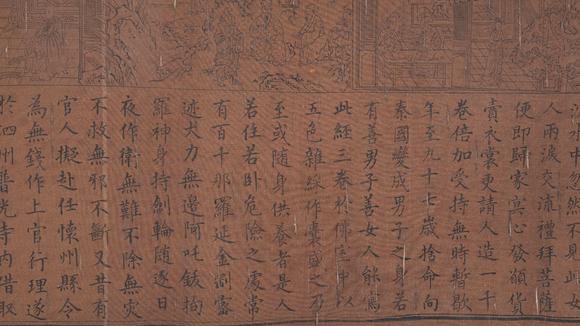 水中忽然不見此女
人雨淚交流禮拜菩薩
便即歸家冥心發願貨
賣衣裳更請人造一千
卷倍加受持無時暫歇
年至九十七歲捨命向
秦國變成男子之身若
有善男子善女人能寫
此經三卷於佛室中以
五色雜綵作囊盛之乃
至或隨身供養者是人
若住若臥危險之處常
有百千那羅延金剛密
跡大力無邊阿吒鈸拘
羅神身持劍輪隨逐日
夜作衛無難不除無灾
不救無邪不斷又昔有
官人擬赴任懷州縣令
為無錢作上官行理遂
於泗州普光寺內借取